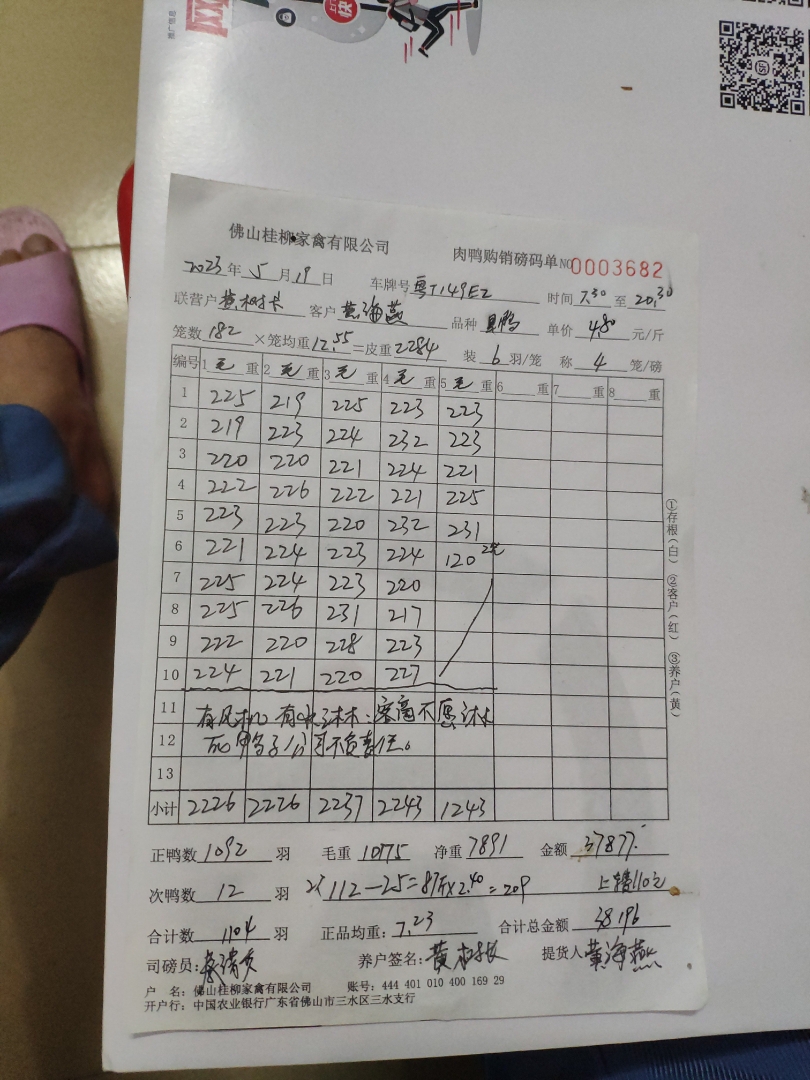 推广信息
网
快
佛山桂柳家禽有限公司
肉鸭购销磅码单 NO 0003682
2023 年 5 月 19 日 车牌号 粤T149EZ 时间 7.30 至 20.30
联营户 黄树 客户 黄海燕 品种 鸭 单价 4.80 元/斤
笼数 182 ×笼均重 12.55 =皮重 2284 装 6 羽/笼 称 4 笼/磅
编号 1 毛 重 2 毛 重 3 毛 重 4 毛 重 5 毛 重 6 重 7 重 8 重
1 225 219 225 223 223
2 219 223 224 232 223
3 220 220 221 224 221
4 222 226 222 221 225
5 223 223 220 232 231
6 221 224 223 224 120 2笼
7 225 224 223 220
8 225 226 231 217
9 222 220 228 223
10 224 221 220 227
11 有风机 有 不愿
12 公司不负责任。
13
小计 2226 2226 2237 2243 1243
正鸭数 1092 羽 毛重 10175 净重 7891 金额 37877.
次鸭数 12 羽 112-25=87斤×2.40=209 上 110元
合计数 1104 羽 正品均重: 7.23 合计总金额 38196
司磅员: 养户签名: 黄树 提货人 黄海燕
户 名: 佛山桂柳家禽有限公司 账号: 444 401 010 400 169 29
开户行: 中国农业银行广东省佛山市三水区三水支行
①存根(白) ②客户(红) ③养户(黄)